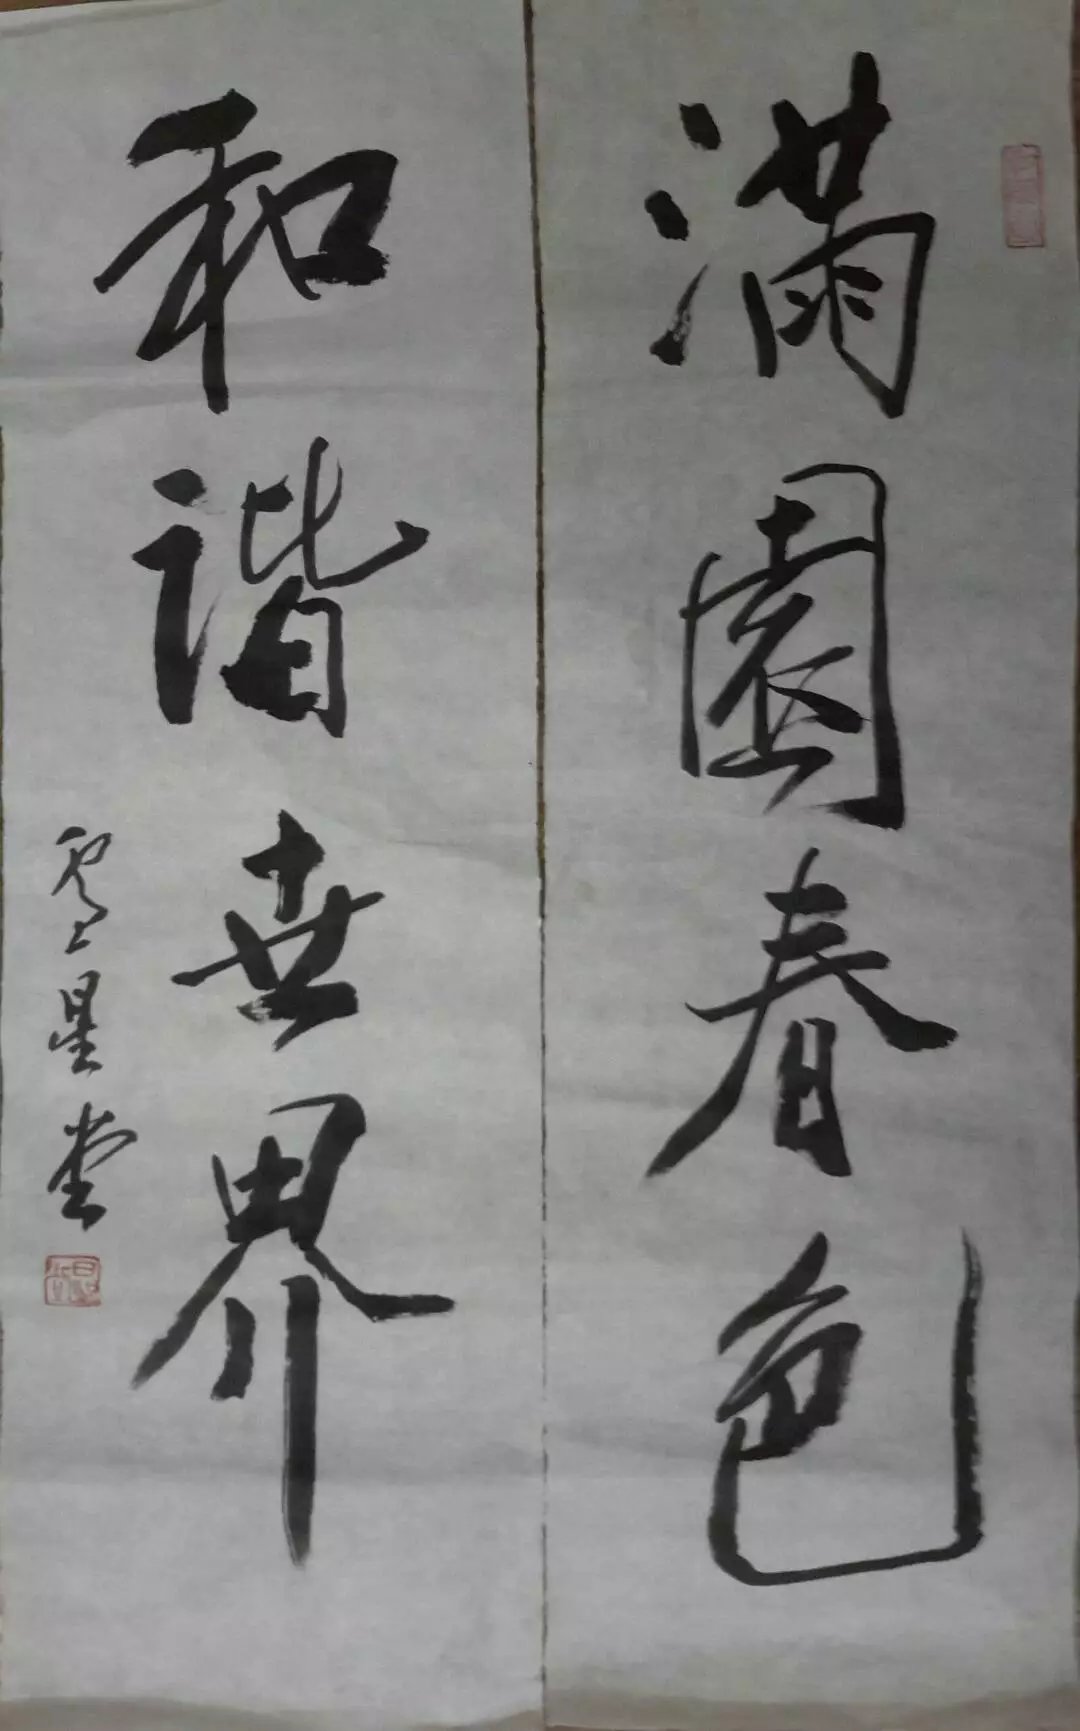 滿園春色
和谐世界
星堂